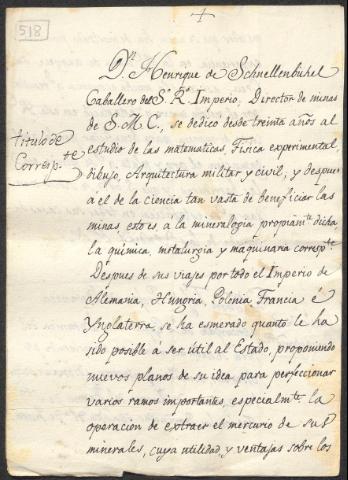 518
D.n Henrique de Schnellenbühel
Caballero del S.R. Imperio, Director de minas
de S.M.C., se dedicó desde treinta años al
titulo de
Corresp.te
estudio de las matematicas, Fisica experimental,
dibujo, Arquitectura militar y civil, y despues
a el de la ciencia tan vasta de beneficiar las
minas, esto es á la mineralogia propiam.te dicha,
la química, metalurgia y maquinaria corresp.te
Despues de sus viajes por todo el Imperio de
Alemania, Hungria, Polonia Francia é
Ynglaterra, se ha esmerado quanto le ha
sido posible á ser útil al Estado, proponiendo
nuevos planos de su idea para perfeccionar
varios ramos importantes, especialm.te la
operacion de extraer el mercurio de sus
minerales, cuya utilidad, y ventajas sobre los